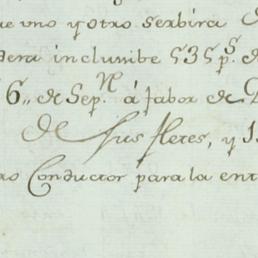 e uno y otro serbira
dera inclusibe 535 p.s d
6,, de Sep.N á fabor de
de sus fletes, y 1
ro Conductor para la ent